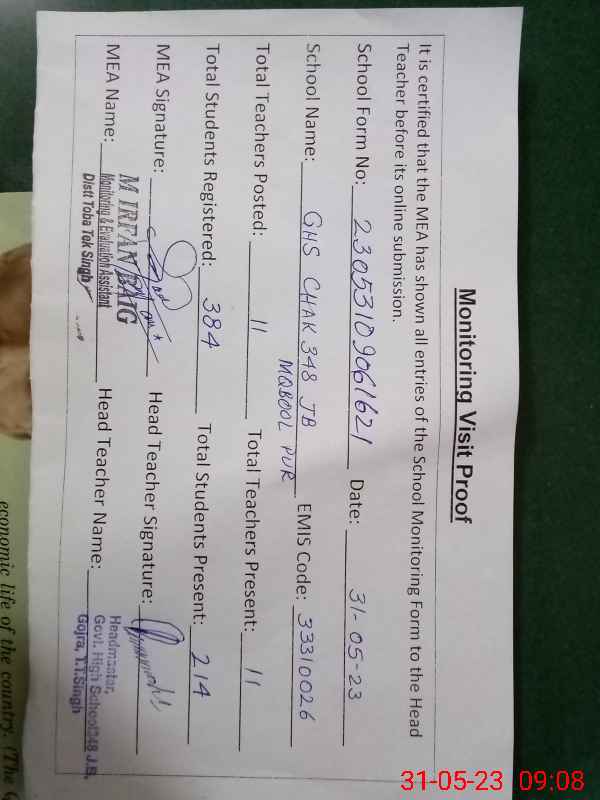 Monitoring Visit Proof
It is certified that the MEA has shown all entries of the School Monitoring Form to the Head
Teacher before its online submission.
School Form No: 23053109061621 Date: 31-05-23
School Name: GHS CHAK 348 JB EMIS Code: 33310026
MQBOOL PUR
Total Teachers Posted: 11 Total Teachers Present: 11
Total Students Registered: 384 Total Students Present: 214
MEA Signature: Head Teacher Signature:
MEA Name: M IRFAN BAIG Head Teacher Name: Headmaster,
Monitoring & Evaluation Assistant Govt. High School 348 J.B.
Distt Toba Tek Singh Gojra, T.T.Singh
economic life of the country. (The
31-05-23 09:08